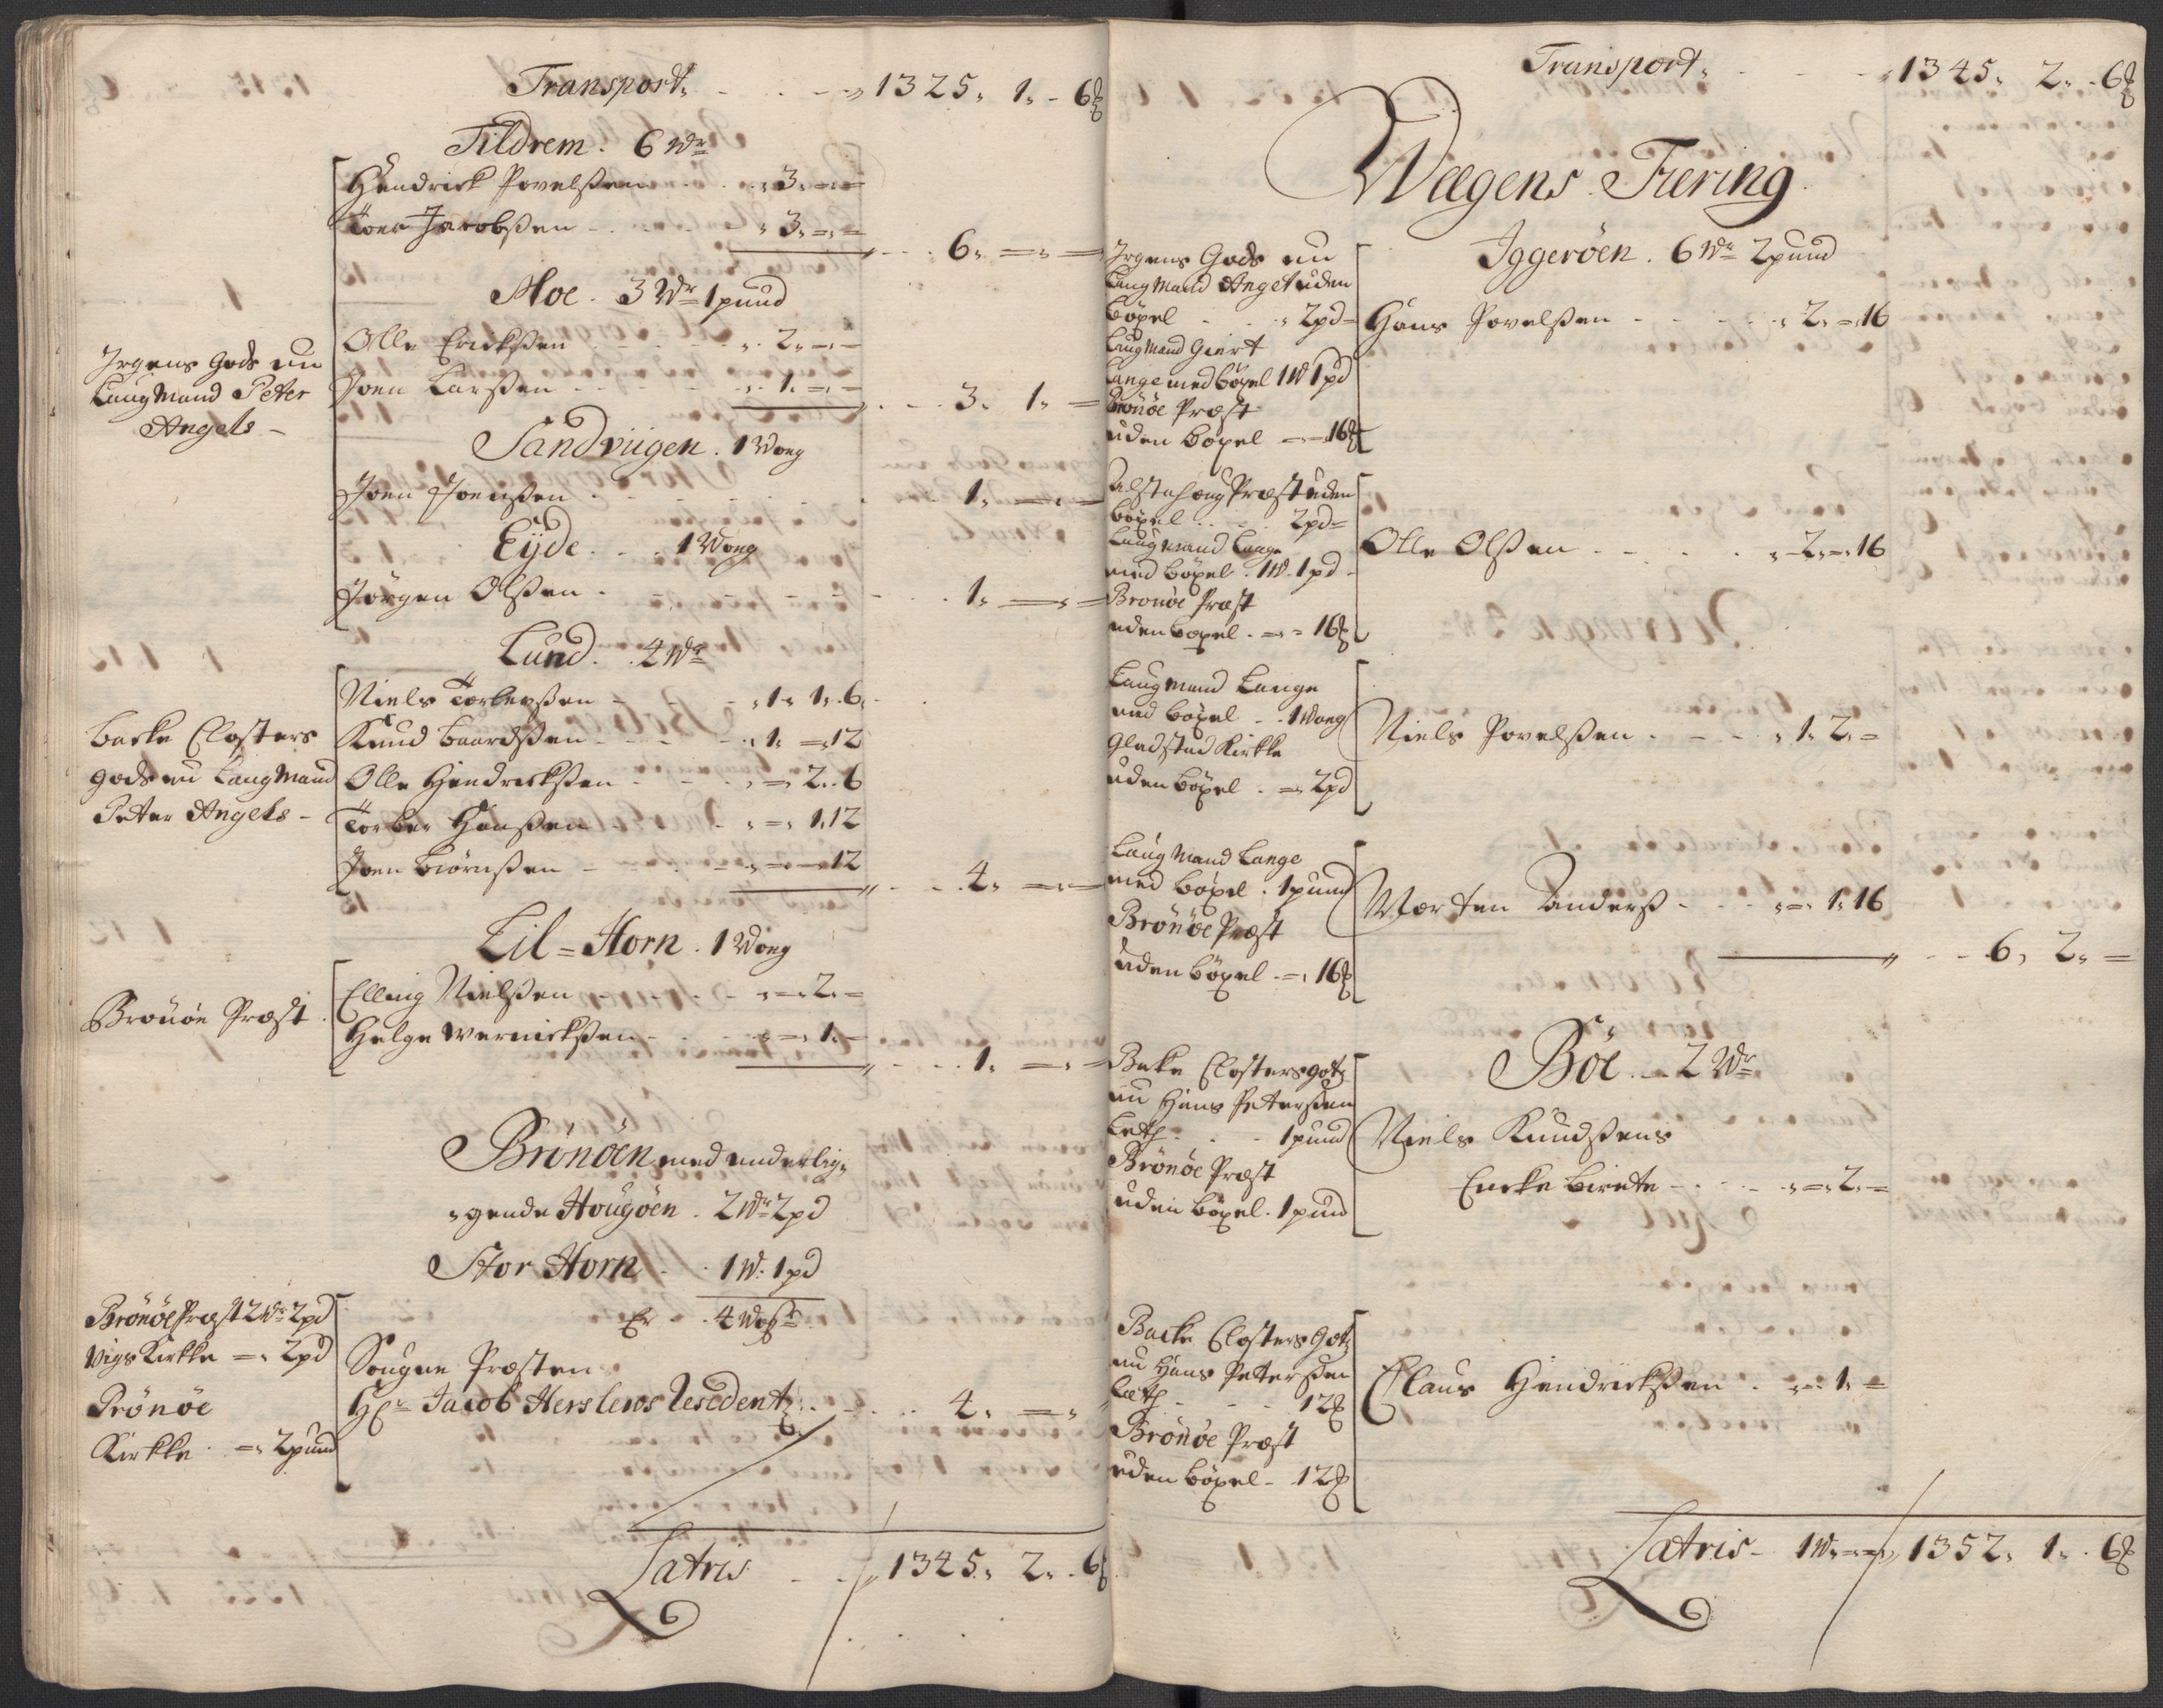 Transport 1325. 1. 6
Tildrem. 6 Wr
Hendrick Povelßen 3. = =
Toer Jacobßen 3. = =
6. = =
Moe. 3 Wr 1 pund
Jrgens Gods nu
Laugmand Peter
Angels
Olle Erickßen 2. = =
Joen Larßen 1. = =
3. 1. =
Sandviigen. 1 Woeg
Joen Joenßen 1. = =
Eyde. 1 Woeg
Jörgen Olßen 1. = =
Lund. 4 Wr
Backe Closters
gods nu Laugmand
Peter Angels
Niels 1. 1. 6
Knud Baardßen 1. = 12
Olle Hendrickßen = 2. 6
Torber Hanßen = 1. 12
Joen Biörnßen = = 12
4. = =
Lil = Horn. 1 Woeg
Brönöe Præst
Elling Nielßen = 2. =
Helge Wernickßen = 1. =
1. = =
Brönöen med underlig-
gende Hougöen. 2 Wr 2 pd
Stor Horn 1 W. 1 pd
Er 4 Wogr
Brönöe Præst 2 Wr 2 pd
Vigs Kirkke = 2 pd
Brönöe
Kirkke = 2 pund
Sougne Præsten
Hr Jacob Herslews Residentz 4. = =
Latris 1345. 2. 6
Transport 1345. 2. 6
Wægens Fiering
Jggeröen. 6 Wr 2 pund
Jrgens Gods nu
Laugmand Angel uden
böxel 2 pd =
Laugmand Giert
Lange med böxel 1 W 1 pd
Brönöe Præst
uden böxel = 16
Hans Povelßen 2. = 16
Alstahoug Præst uden
böxel 2 pd =
Laugmand Lange
med böxel. 1 W. 1 pd
Brönöe Præst
uden böxel. = 16
Olle Olßen 2. = 16
Laugmand Lange
med böxel 1 Woeg
Gladstad Kirkke
uden böxel. = 2 pd
Niels Povelßen 1. 2. =
Laugmand Lange
med böxel. 1 pund
Brönöe Præst
uden böxel. = 16
Morten Anderß = 1. 16
6. 2. =
Böe. 2 Wr
Bake Closters gotz
nu Hans Peterßen
Leth 1 pund
Brönöe Præst
uden böxel. 1 pund
Niels Knudßens
Encke Birete = 2. =
Backe Closters Gotz
nu Hans Peterßen
Leth 12
Brönöe Præst
uden böxel 12
Claus Hendrickßen = 1. =
Latris 1 W. = = 1352. 1. 6